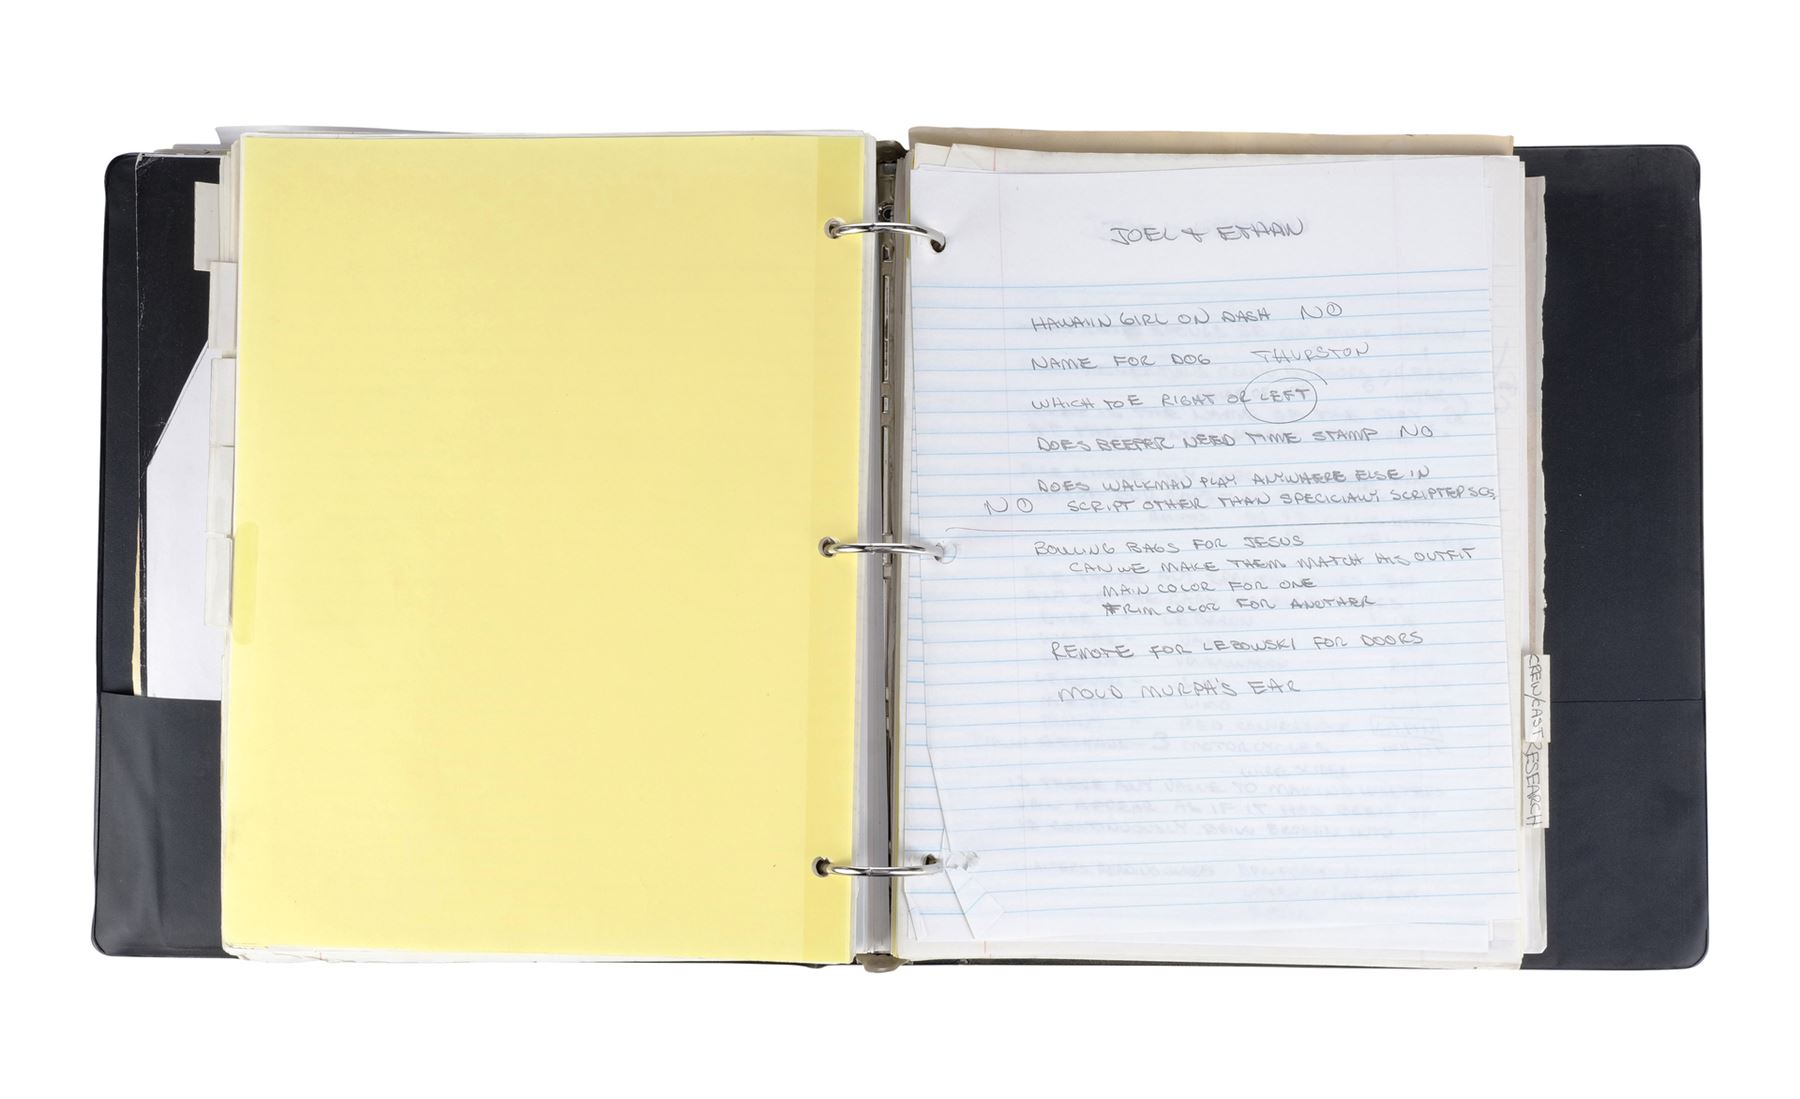 JOEL & ETHAN
HAWAIIN GIRL ON DASH NO
NAME FOR DOG THURSTON
WHICH TOE RIGHT OR LEFT
DOES BEEPER NEED TIME STAMP NO
DOES WALKMAN PLAY ANYWHERE ELSE IN
NO SCRIPT OTHER THAN SPECICIALLY SCRIPTED SCS
BOWLING BAGS FOR JESUS
CAN WE MAKE THEM MATCH HIS OUTFIT
MAIN COLOR FOR ONE
TRIM COLOR FOR ANOTHER
REMOTE FOR LEBOWSKI FOR DOORS
MOLD MURPH'S EAR
CREW/CAST
RESEARCH